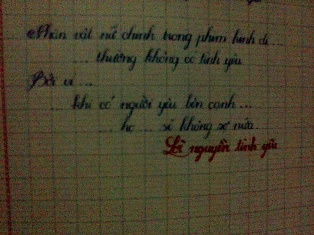 Nhân vật nữ chính trong phim kinh dị ...
.... thường không có tình yêu
Bởi vì ....
... khi có người yêu bên cạnh ...
.... họ .... sẽ không sợ nữa.
Lời nguyền tình yêu